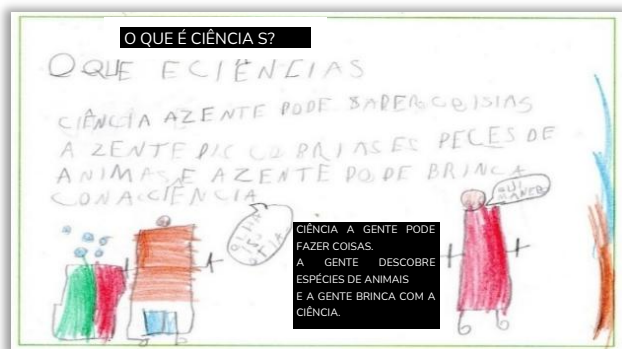 O QUE É CIÊNCIA S?
O QUE E CIENCIAS
CIÊNCIA AZENTE PODE SABER COISIAS
A ZENTE DISCOBRI AS ES PECES DE
ANIMAS E AZENTE PODE BRINCA
CONA CIÊNCIA
CIÊNCIA A GENTE PODE
FAZER COISAS.
A GENTE DESCOBRE
ESPÉCIES DE ANIMAIS
E A GENTE BRINCA COM A
CIÊNCIA.